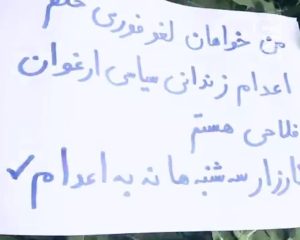 من خواهان لغو فوری حکم
اعدام زندانی سیاسی ارغوان
فلاحی هستم
کارزار سه شنبه ها نه به اعدام ✓